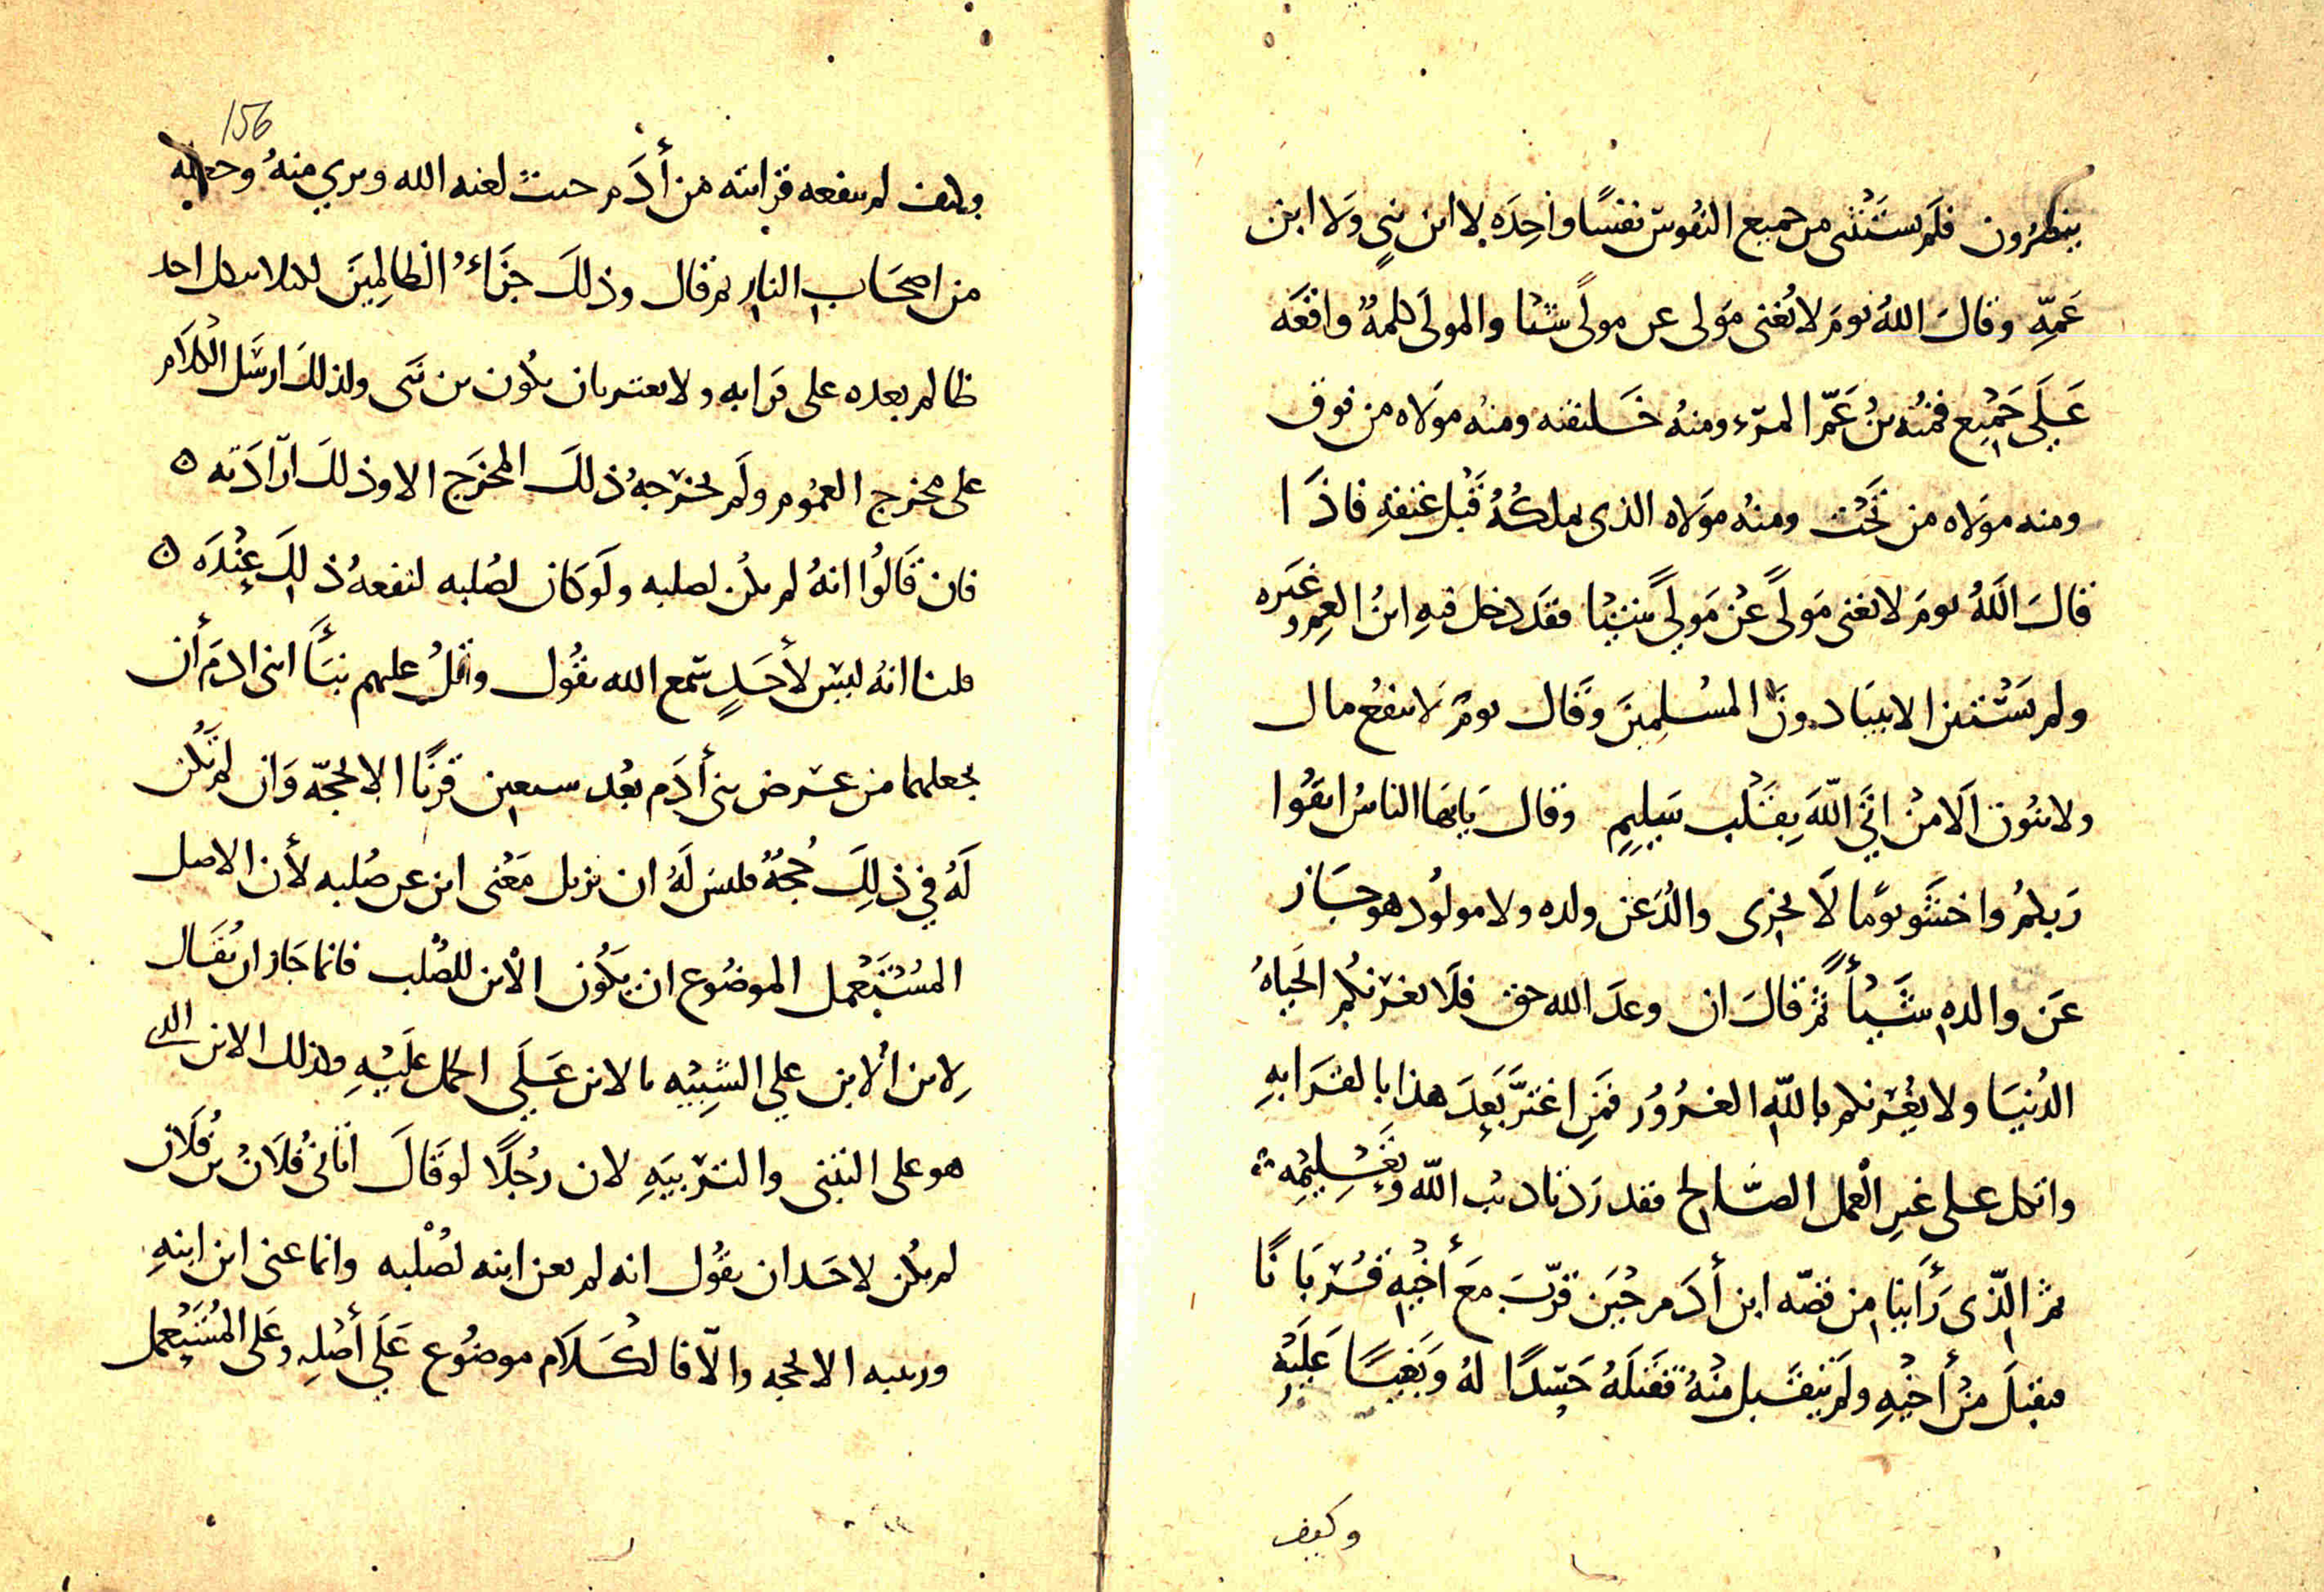 ينظرون فلم يستثنى من جميع النفوس نفسًا واحِدَه لا ابن نبيٍ وَلا ابن
عَمِّهِ وقالَ اللهُ يومَ لا يُغنى مَولى عن مولىً شيا والمولىَ كلمهٌ واقعَه
عَلَى جَمْيع فمنْه بنُ عَمّ المرَء ومنهُ خَليفته ومنه مولاه من فوق
ومنه مولاه من تَحْت ومنهُ مولاه الذى يملكُهُ قَبْل عتقهِ فاذَا
قالَ اللهُ يومَ لا يغنى مَولىً عَنْ مَولىً شَيْيا فقَد دخل فيهِ ابنُ العم وغيَره
ولم يَسْتثنى الانبيَا دونَ المسْلِمينَ وَقَال يومَ لا ينفعُ مال
ولا بنُون الَا مَنْ اتَى اللّهَ بِقَلْب سَلِيمٍ وقالَ يَايهَا الناسُ اتقُوا
رَبكمُ واخشَو يومًا لَا يجزى والدُ عَن ولده ولا مولُود هو جَاز
عَن والدهِ شَيْأً ثم قالَ ان وعدَ الله حق فلَا يغرَنكم الحَياهُ
الدُنيَا ولا يغُرنكم باللّهِ الغرُورُ فمَنِ اغترَّ بَعدَ هذا بالقَرَابهِ
واتكل على غير الْعمل الصَّالح فقد رَد تاديبَ اللّه وتَعْلِيمِه
ثم الّذى رَأَينا مِن قصّه ابن أدَم حيْنَ قرّبَ مَعَ أخيْهِ قُربَانًا
فتقبلَ مْن أخيْهِ ولَم يتقَبل منْهُ فَقَتلَهُ حَسَدًا لهُ وَبَغيًا عَلَيْهِ
وكيف
156
وكيف لم ينفعه قرابته من أدَم حيثُ لعنه الله وبري منهُ وجعله
من اصحَاب النار ثم قال وذلكَ جَزَاءُ الظالِمِينَ ليلا يتكل احد
ظالم بعده على قرابه ولا يعتبر بان يكون بن نبَى ولذلكَ ارسَل الكَلَام
على مخرج العمُوم ولَم يخرجهُ ذلكَ المخرَج الا وذلكَ ارَادَته ٥
فان قَالُوا انهُ لم يكُن لصلبه ولَو كان لصُلبه لنفعهُ ذلِكَ عِنْدَه ٥
قلنا انهُ ليسْ لأحَدٍ سَمع الله يقُول واتْلُ عليهم نَبَأَ ابنى ادَم أن
يجعلهما من عرض بنى أدَم بعْد سبعين قرنًا الا بحجّه وَان لَم تَكُن
لَهُ في ذلِكَ حُجَةٌ فليسَ لَهُ ان يزيل مَعْنى ابن عن صُلبه لأن الاصل
المسْتَعْمل الموضُوع ان يكُون الْابن للصُلب فانما جَاز ان يُقَال
لابن الْابن علي التشبِيْه بالابن عَلَي الحمل عَلَيْهِ وكذلك الابن الذي
هو على التبَنى والتربيَهِ لان رَجُلًا لو قَالَ اتَانىُ فلَانُ بنُ فُلَان
لم يكُن لاحَد ان يقُول انه لم يعن ابنه لصُلْبه وانما عنى ابن ابنهِ
وربيبه الا بحجه والّا فالكَلَام موضُوع عَلَي أصْلِهِ وعَلى المُسْتَعمل